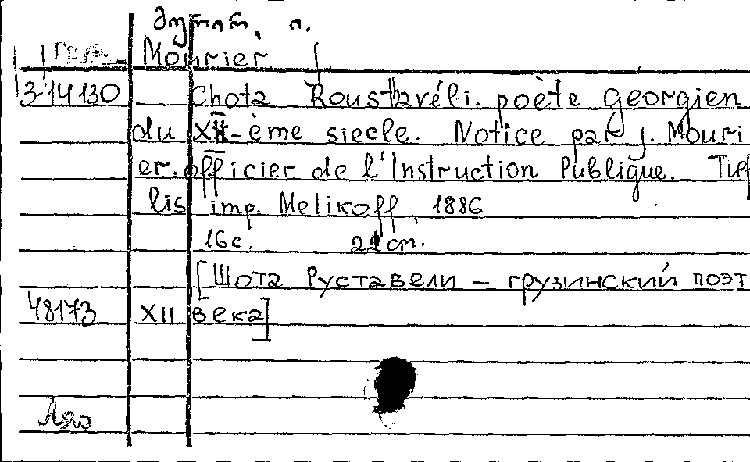 მურიე, ი.
Mourier
3-14130 Chota Roustavéli. poète georgien
du XII-ème siecle. Notice par J. Mouri
er. officier de l'Instruction Publique. Tif
lis imp. Melikoff 1886
16c. 21 cm.
[Шота Руставели – грузинский поэт
48173 XII века]